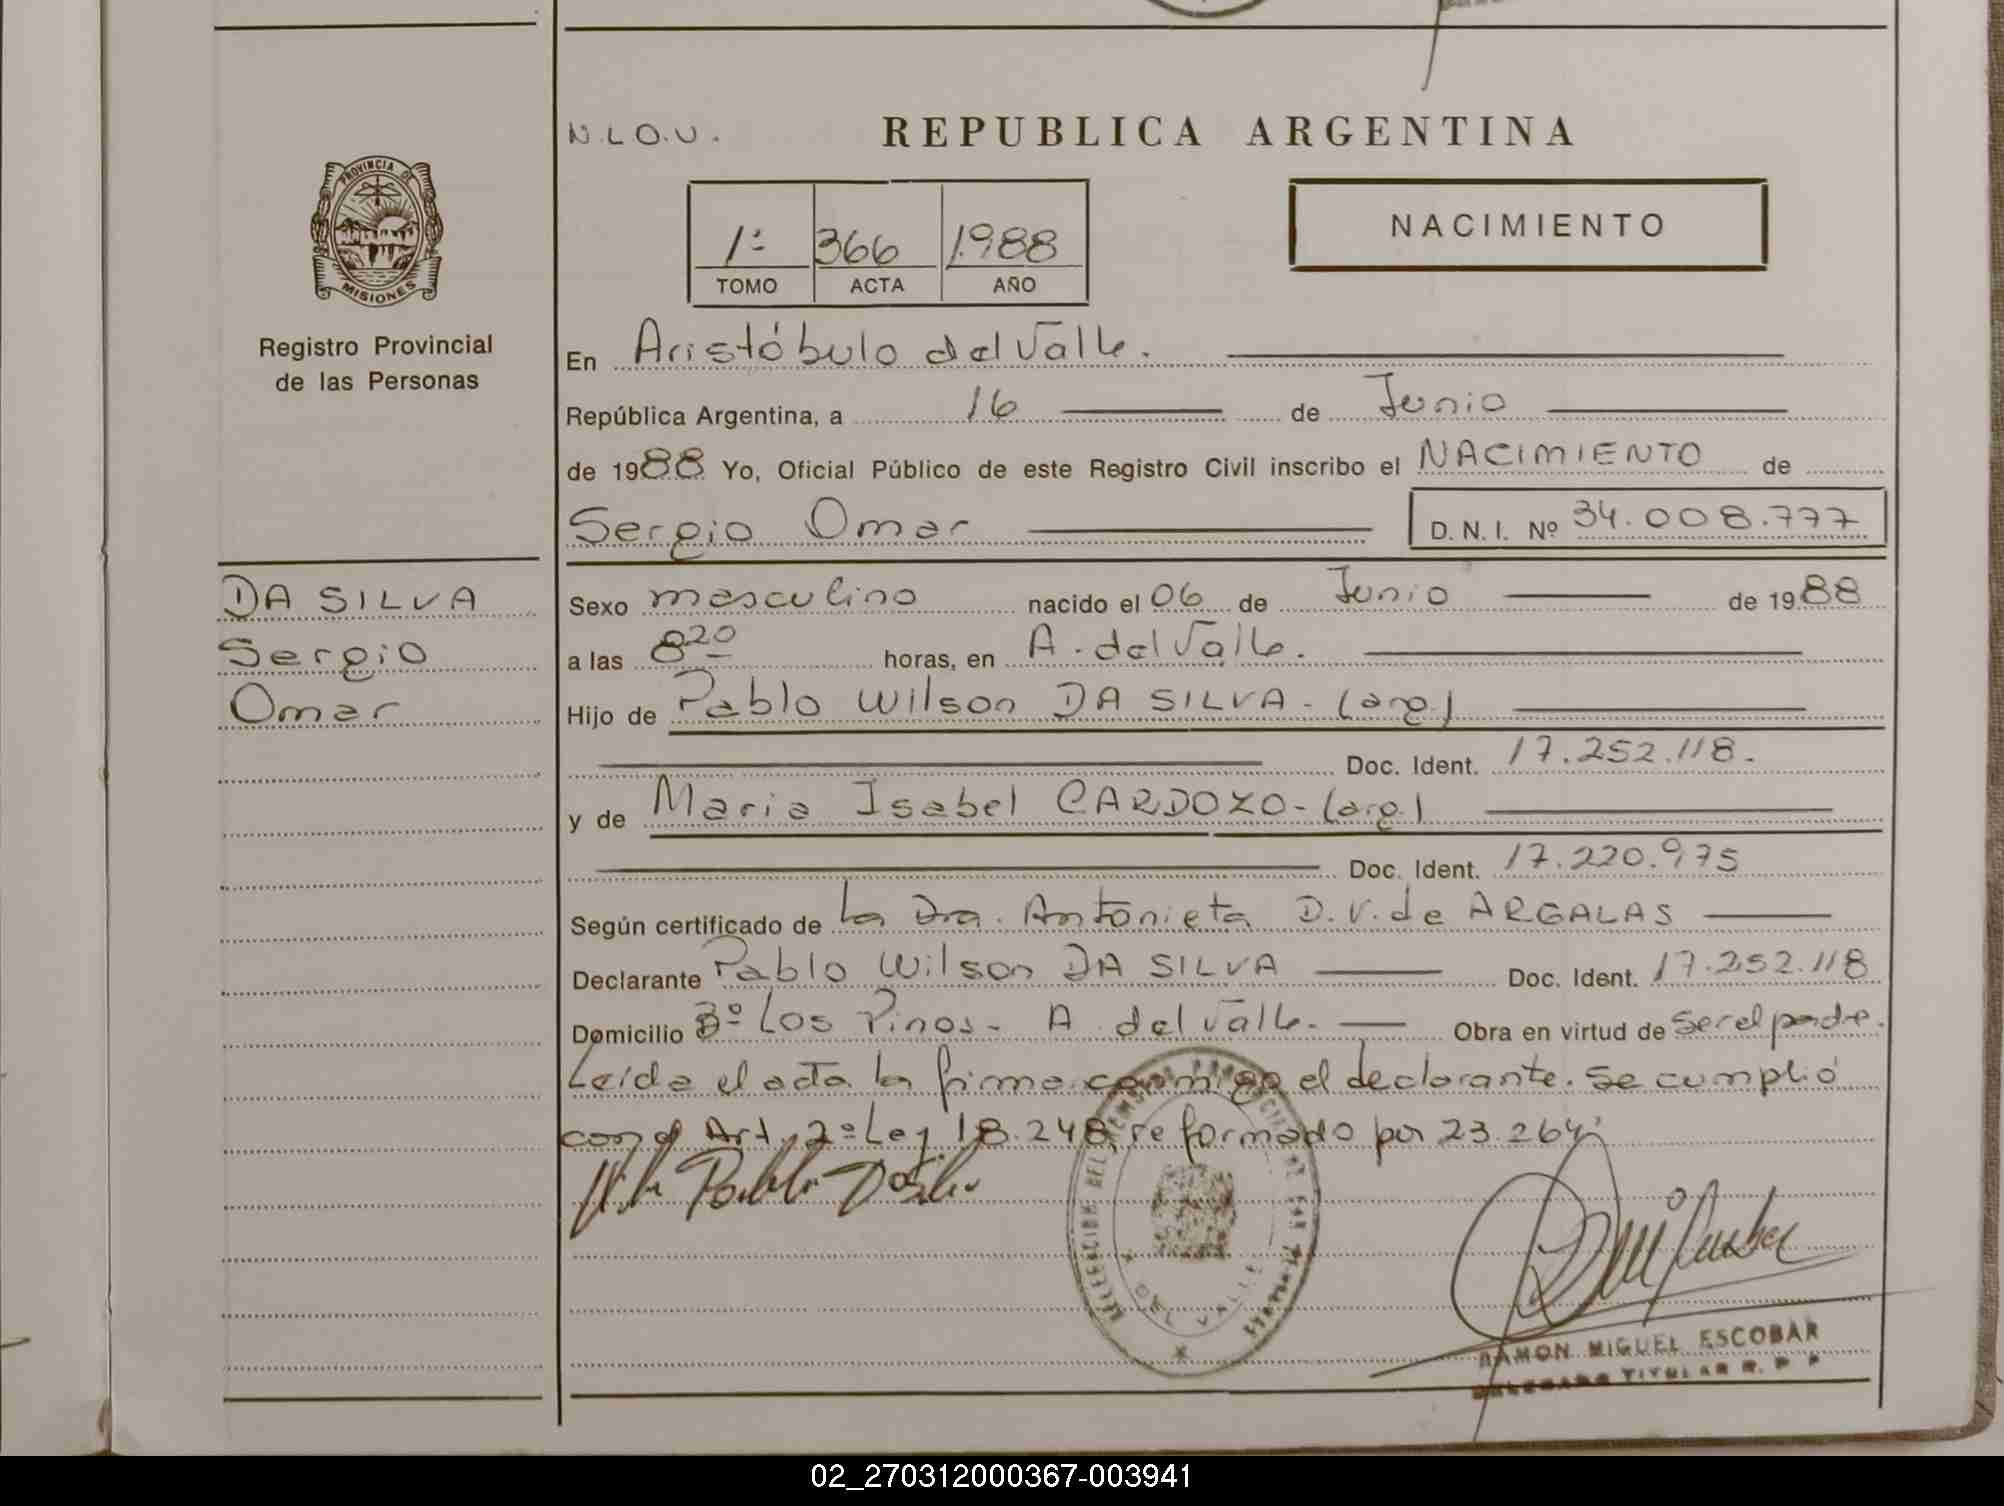 N.L.O.U.
REPUBLICA ARGENTINA
PROVINCIA DE
MISIONES
NACIMIENTO
1ª 366 1988
TOMO ACTA AÑO
Registro Provincial
de las Personas
En Aristóbulo del Valle.
República Argentina, a 16 de Junio
de 1988 Yo, Oficial Público de este Registro Civil inscribo el NACIMIENTO de
Sergio Omar D. N. I. Nº 34.008.777
DA SILVA
Sergio
Omar
Sexo masculino nacido el 06 de Junio de 1988
a las 8 20 horas, en A. del Valle.
Hijo de Pablo Wilson DA SILVA - (arg.)
Doc. Ident. 17.252.118.
y de Maria Isabel CARDOZO - (arg.)
Doc. Ident. 17.220.975
Según certificado de la Dra. Antonieta D.V. de ARGALAS
Declarante Pablo Wilson DA SILVA Doc. Ident. 17.252.118
Domicilio Bº Los Pinos - A. del Valle. Obra en virtud de ser el padre.
Leída el acta la firma conmigo el declarante. Se cumplió
con el Art. 2º Ley 18.248, reformado por 23.264
DEL VALLE
RAMON MIGUEL ESCOBAR
DELEGADO TITULAR R. P. P
02_270312000367-003941